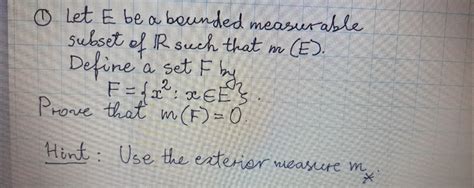 ① Let E be a bounded measurable
subset of ℝ such that m(E).
Define a set F by
F = {x²: x ∈ E}.
Prove that m(F)=0.
Hint: Use the exterior measure m*.